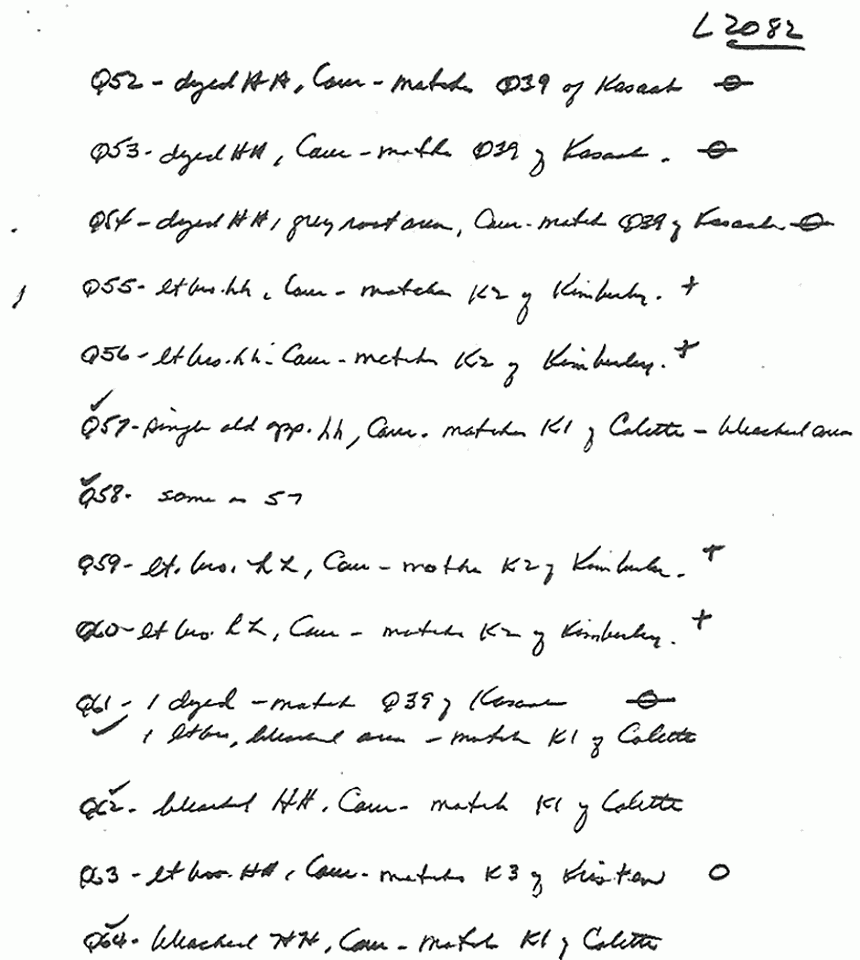 L2082
Q52 - dyed HH, Cauc - matches Q39 of Kasaab
Q53 - dyed HH, Cauc - matches Q39 of Kasaab.
Q54 - dyed HH, grey root area, Cauc. match Q39 of Kasaab
Q55 - lt bro. hh, Cauc - matches K2 of Kimberley. +
Q56 - lt bro. hh - Cauc - matches K2 of Kimberley. +
Q57 - single old app. hh, Cauc. matches K1 of Colette - bleached area
Q58 - same as 57
Q59 - lt. bro. hh, Cauc - matches K2 of Kimberley. +
Q60 - lt bro. hh, Cauc - matches K2 of Kimberley. +
Q61 - 1 dyed - match Q39 of Kasaab
1 lt bro, bleached area - match K1 of Colette
Q62 - bleached HH. Cauc - match K1 of Colette
Q63 - lt bro. HH, Cauc - matches K3 of Kristen O
Q64 - bleached HH, Cauc - match K1 of Colette